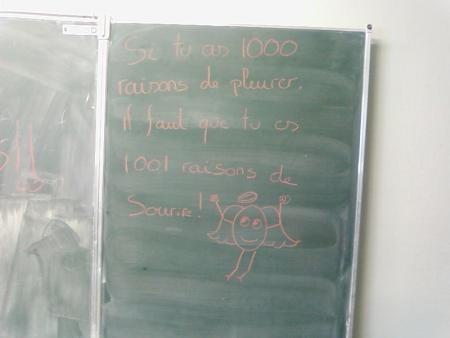 Si tu as 1000
raisons de pleurer,
il faut que tu as
1001 raisons de
Sourire!